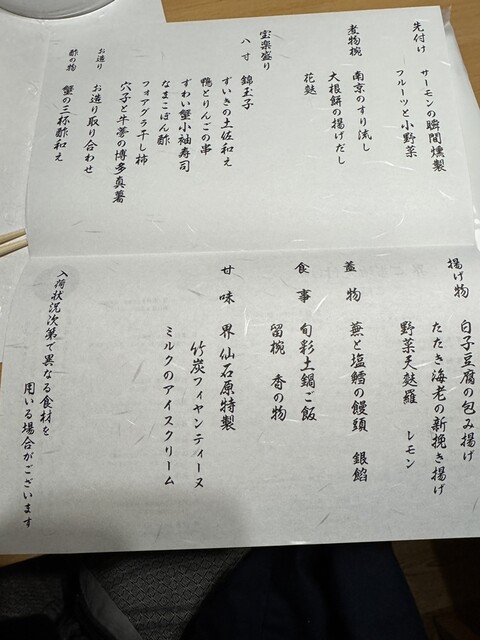 先付け サーモンの瞬間燻製
フルーツと小野菜
煮物椀 南京のすり流し
大根餅の揚げだし
花麩
宝楽盛り
八寸 錦玉子
ずいきの土佐和え
鴨とりんごの串
ずわい蟹小袖寿司
なまこぽん酢
フォアグラ干し柿
穴子と牛蒡の博多真薯
お造り お造り取り合わせ
酢の物 蟹の三杯酢和え
揚げ物 白子豆腐の包み揚げ
たたき海老の新挽き揚げ
野菜天麩羅 レモン
蓋物 蕪と塩鱈の饅頭 銀餡
食事 旬彩土鍋ご飯
留椀 香の物
甘味 界 仙石原特製
竹炭フィヤンティーヌ
ミルクのアイスクリーム
入荷状況次第で異なる食材を
用いる場合がございます